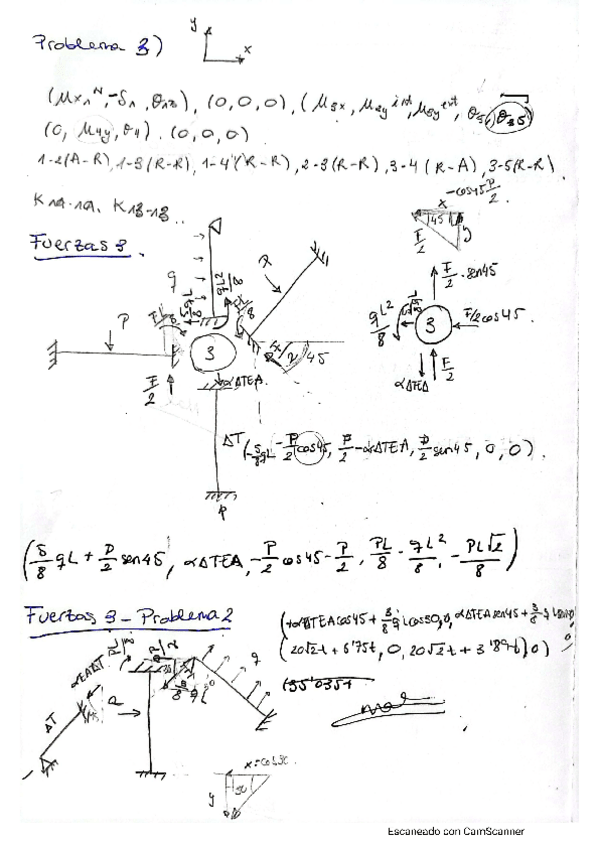 Problema 3)
y
x
(Mx1ᴺ, -δ1, θ12), (0,0,0), (M3x, M3yⁱⁿᵗ, M3yᵉˣᵗ, θ3, θ35)
(0, M4y, θ4). (0,0,0)
1-2(A-R), 1-3(R-R), 1-4(R-R), 2-3(R-R), 3-4(R-A), 3-5(R-R).
K11-12. K13-13
Fuerzas 3.
-cos45 P/2.
x
45
y
P/2
q
P
45
3
αΔTEA
P/2 · sen45
qL²/8
3
P/2 cos45.
αΔTEA
P/2
ΔT
(-5/8 qL - P/2 cos45, P/2 - αΔTEA, P/2 sen45, 0, 0).
(5/8 qL + P/2 sen45, αΔTEA, -P/2 cos45 - P/2, PL/8 - qL²/8, -PL√2/8)
Fuerzas 3 - Problema 2
(+αΔTEAcos45 + 3/8 qLcos30, 0, αΔTEAsen45 + 3/8
(20√2t + 6'75t, 0, 20√2t + 3'89t, 0)
(35'035t
mal
αEAΔT
ΔT
P
q
x=cos30.
30
y
Escaneado con CamScanner